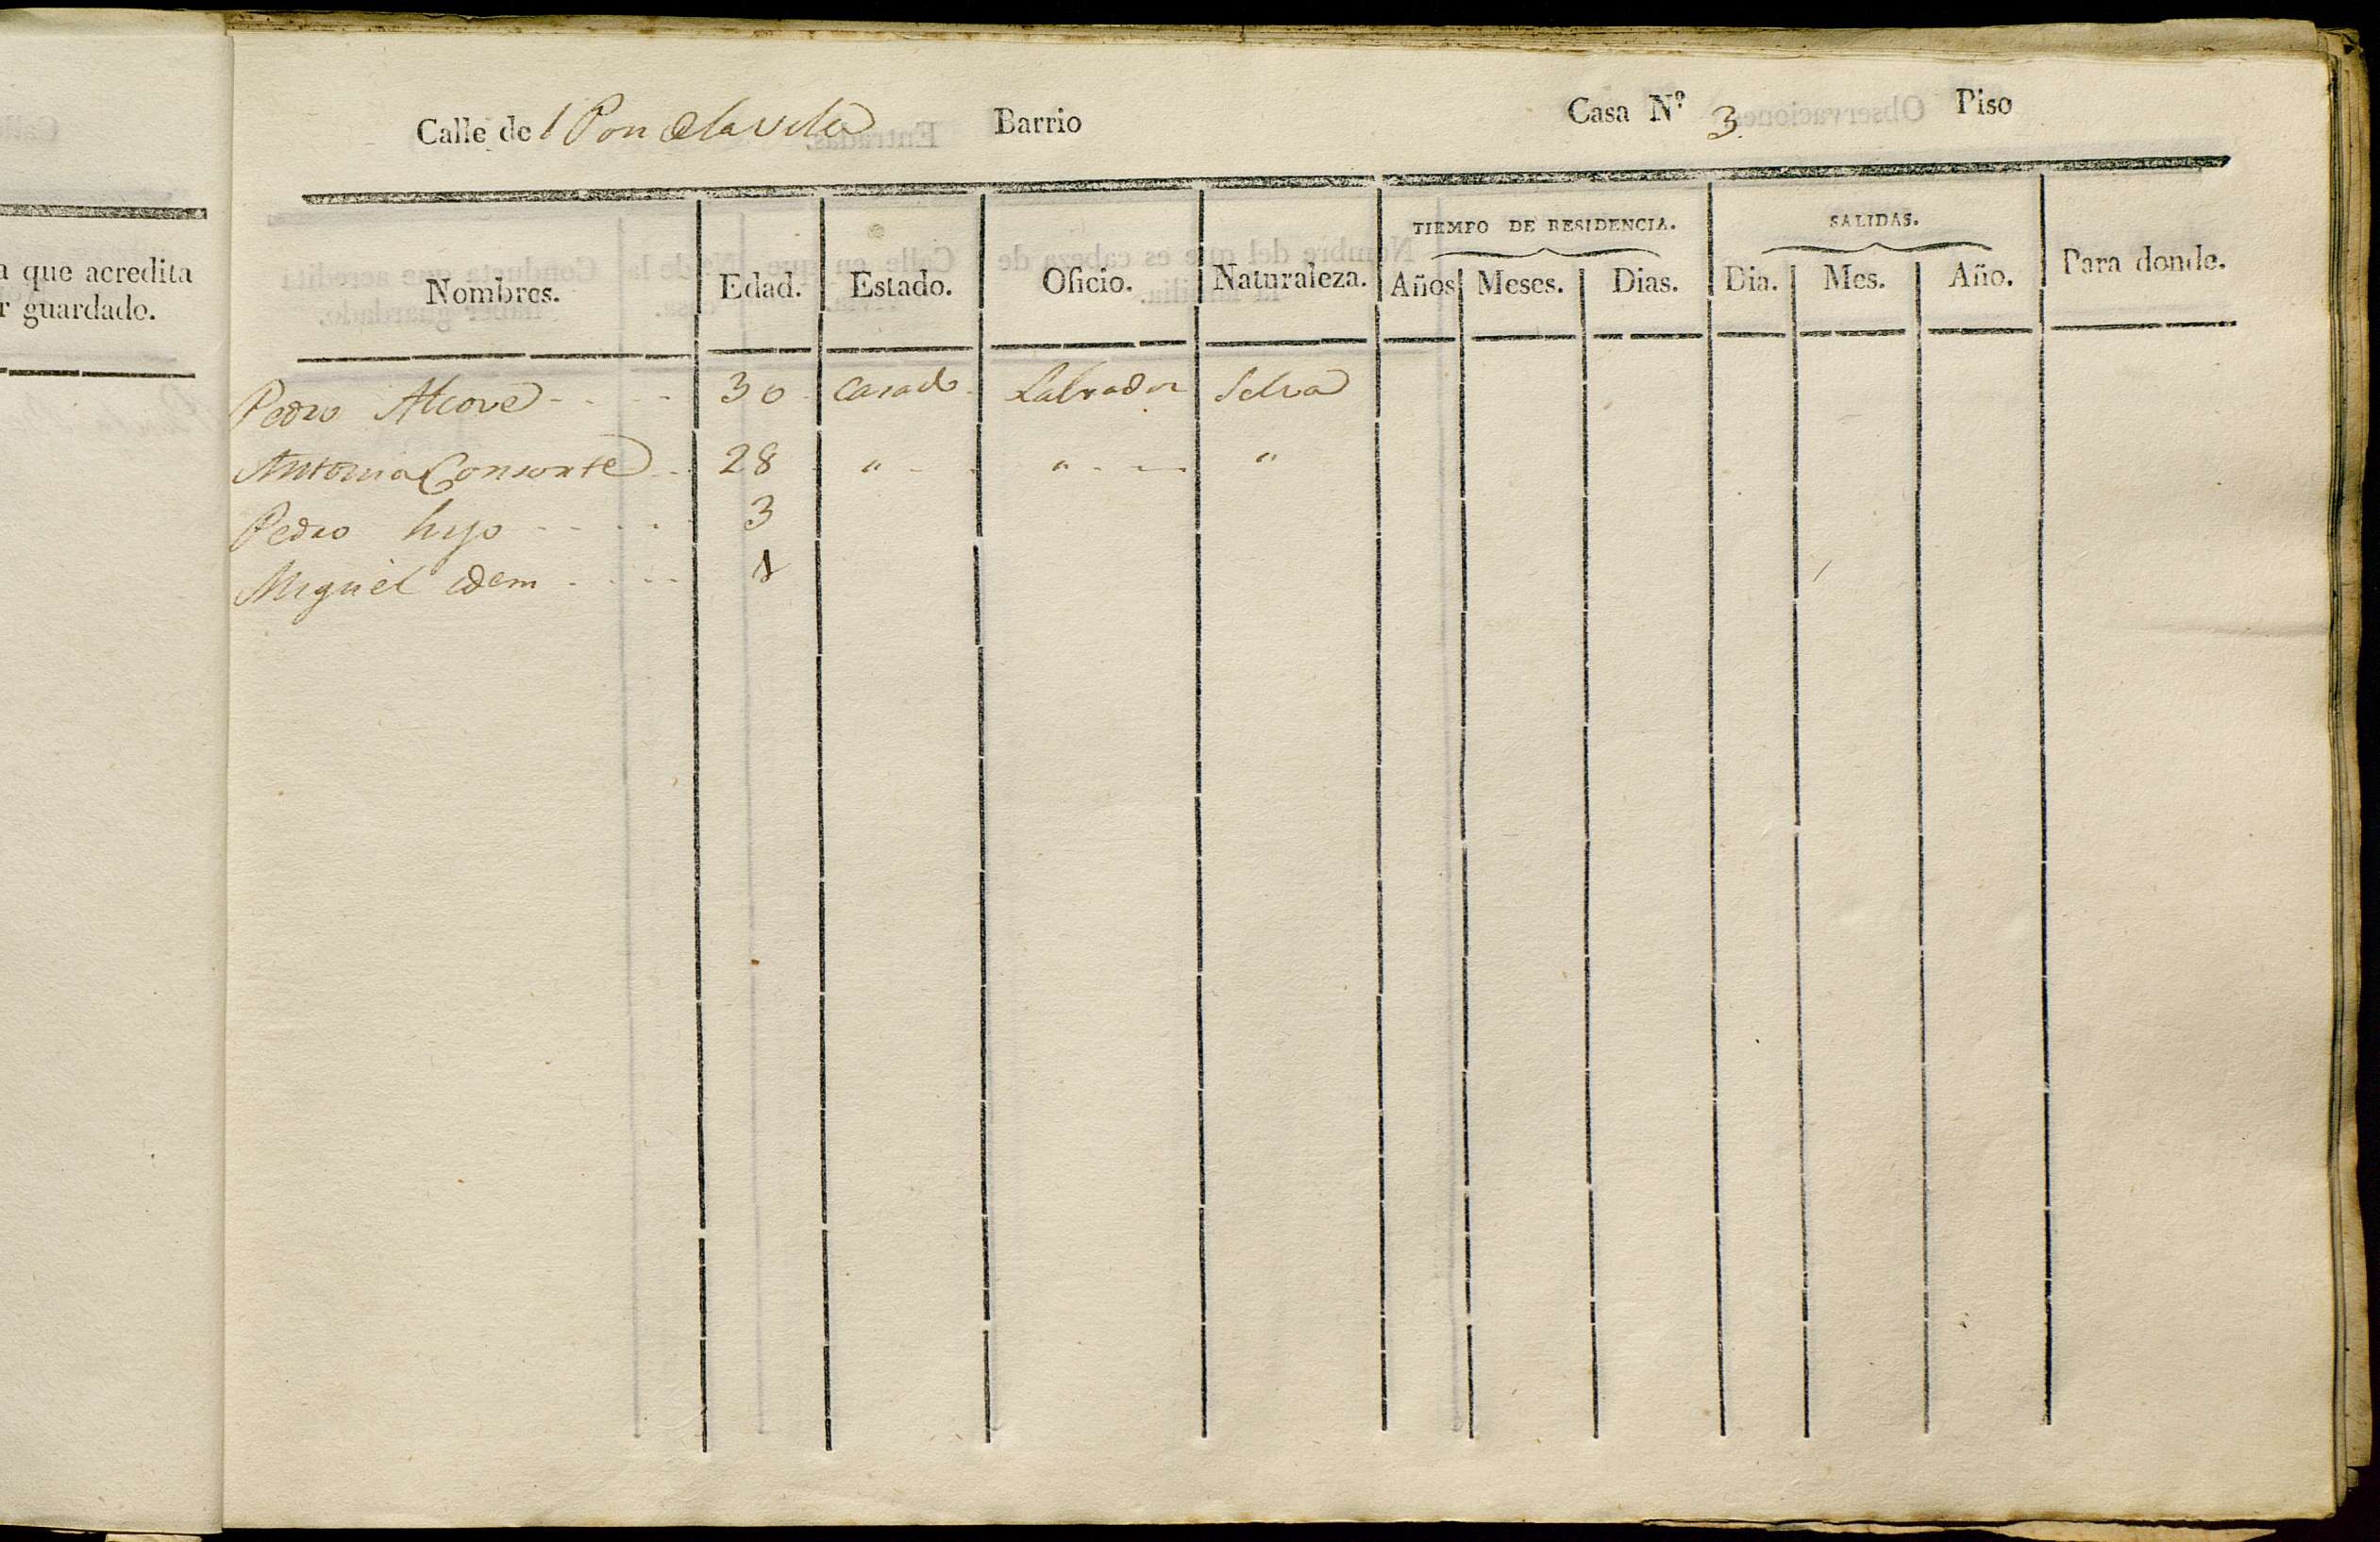 a que acredita
r guardado.
Calle de l Pou dela vila Barrio Casa Nº 3 Piso
TIEMPO DE RESIDENCIA. SALIDAS.
Nombres. Edad. Estado. Oficio. Naturaleza. Años Meses. Dias. Dia. Mes. Año. Para donde.
Pedro Alcove 30 Casado Labrador Selva
Antonia Consorte 28 " " "
Pedro hijo 3
Miguel idem 1